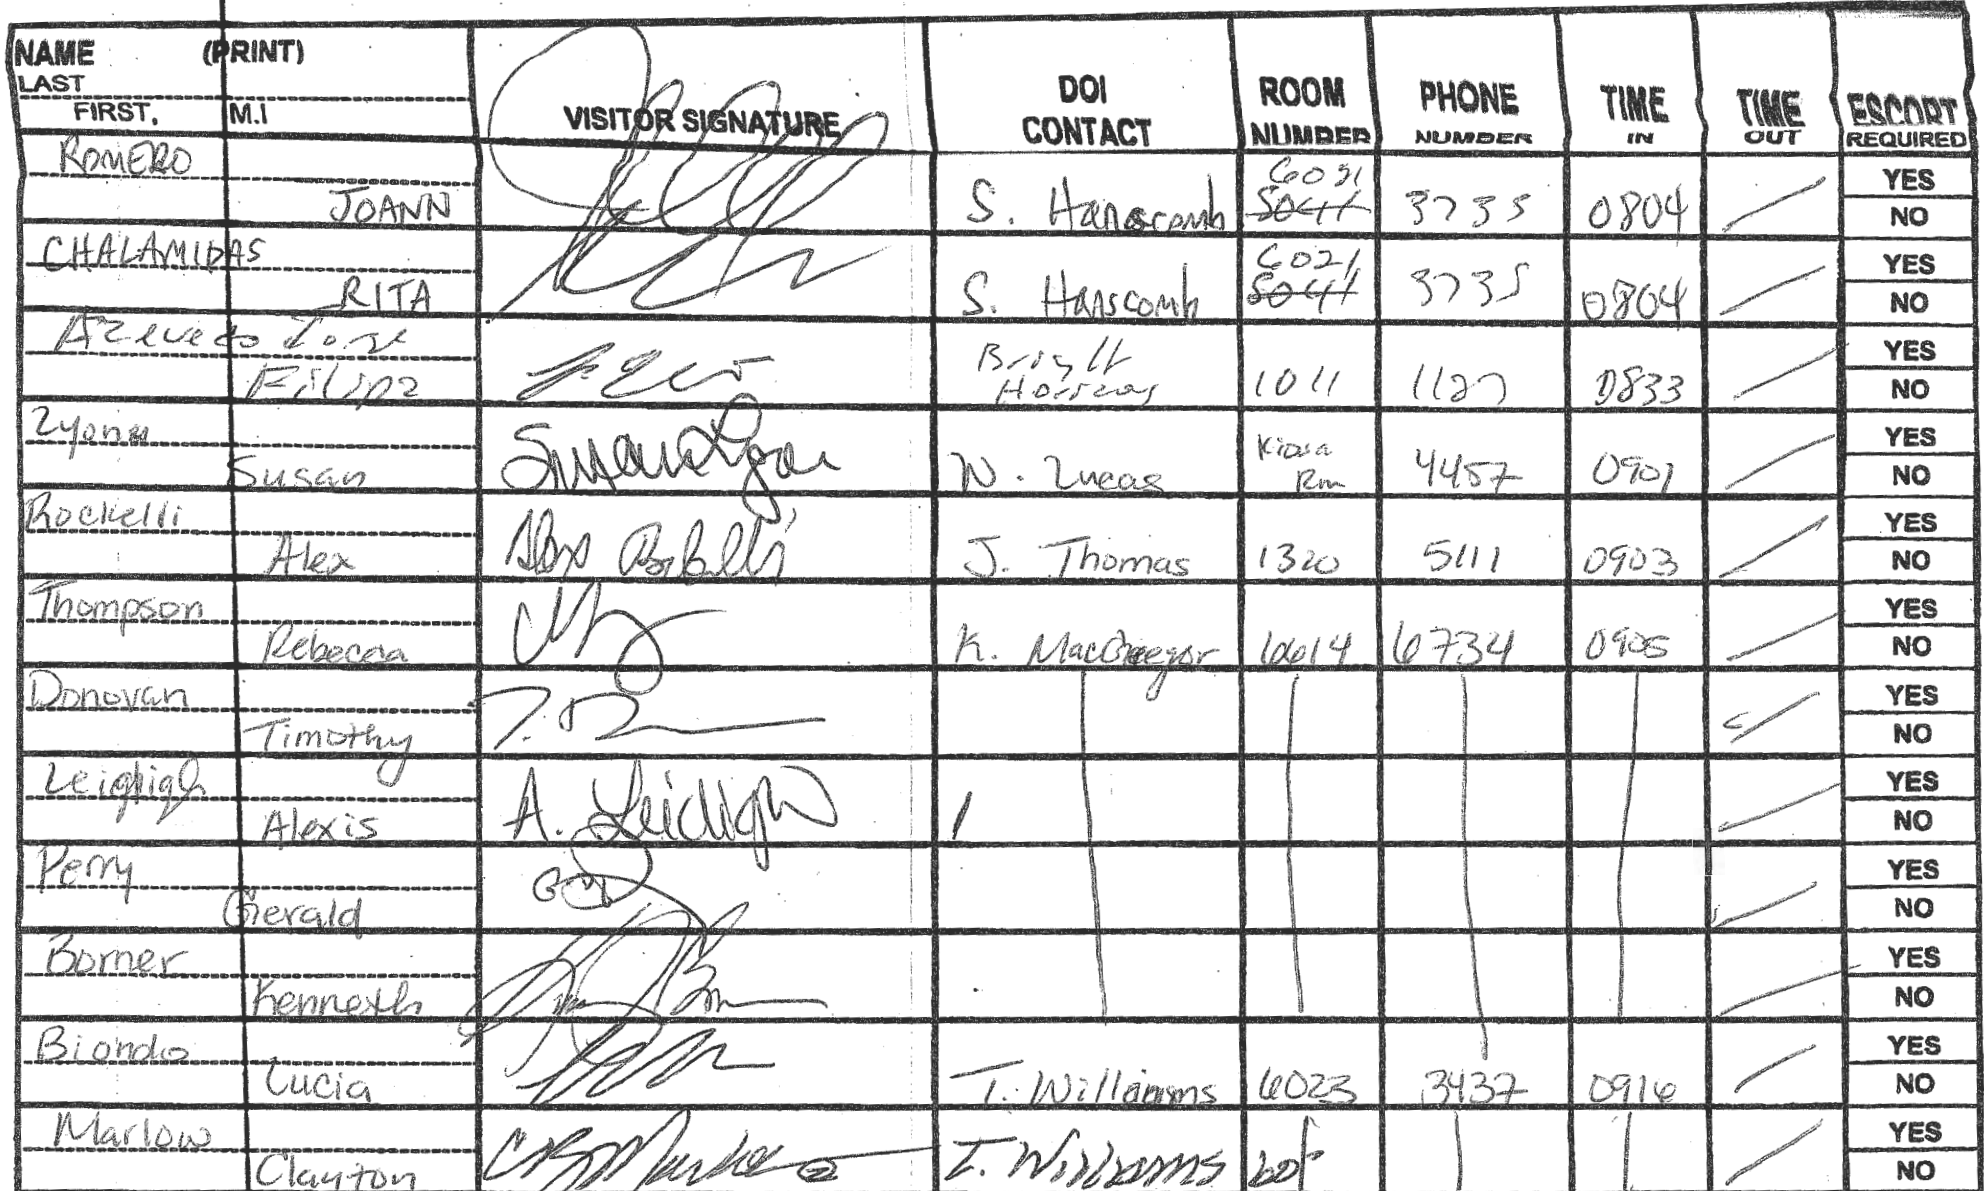 NAME (PRINT)
LAST
FIRST. M.I
VISITOR SIGNATURE
DOI CONTACT
ROOM NUMBER
PHONE NUMBER
TIME IN
TIME OUT
ESCORT REQUIRED
ROMERO
JOANN S. Hanscomb 5041 3735 0804
YES
NO
CHALAMIDAS
RITA S. Hanscomb 6021 5041 3735 0804
YES
NO
Azevedo
Filipa 1011 1127 0833
YES
NO
Lyons
Susan Susan N. Lucas Rm 4457 0901
YES
NO
Rockelli
Alex Alex J. Thomas 1320 5111 0903
YES
NO
Thompson
Rebecca K. MacGregor 6614 6734 0905
YES
NO
Donovan
Timothy
YES
NO
Alexis A. Leidigh
YES
NO
Perry
Gerald
YES
NO
Borner
Kenneth
YES
NO
Biondo
Lucia T. Williams 6023 3437 0916
YES
NO
Marlow
Clayton T. Williams
YES
NO